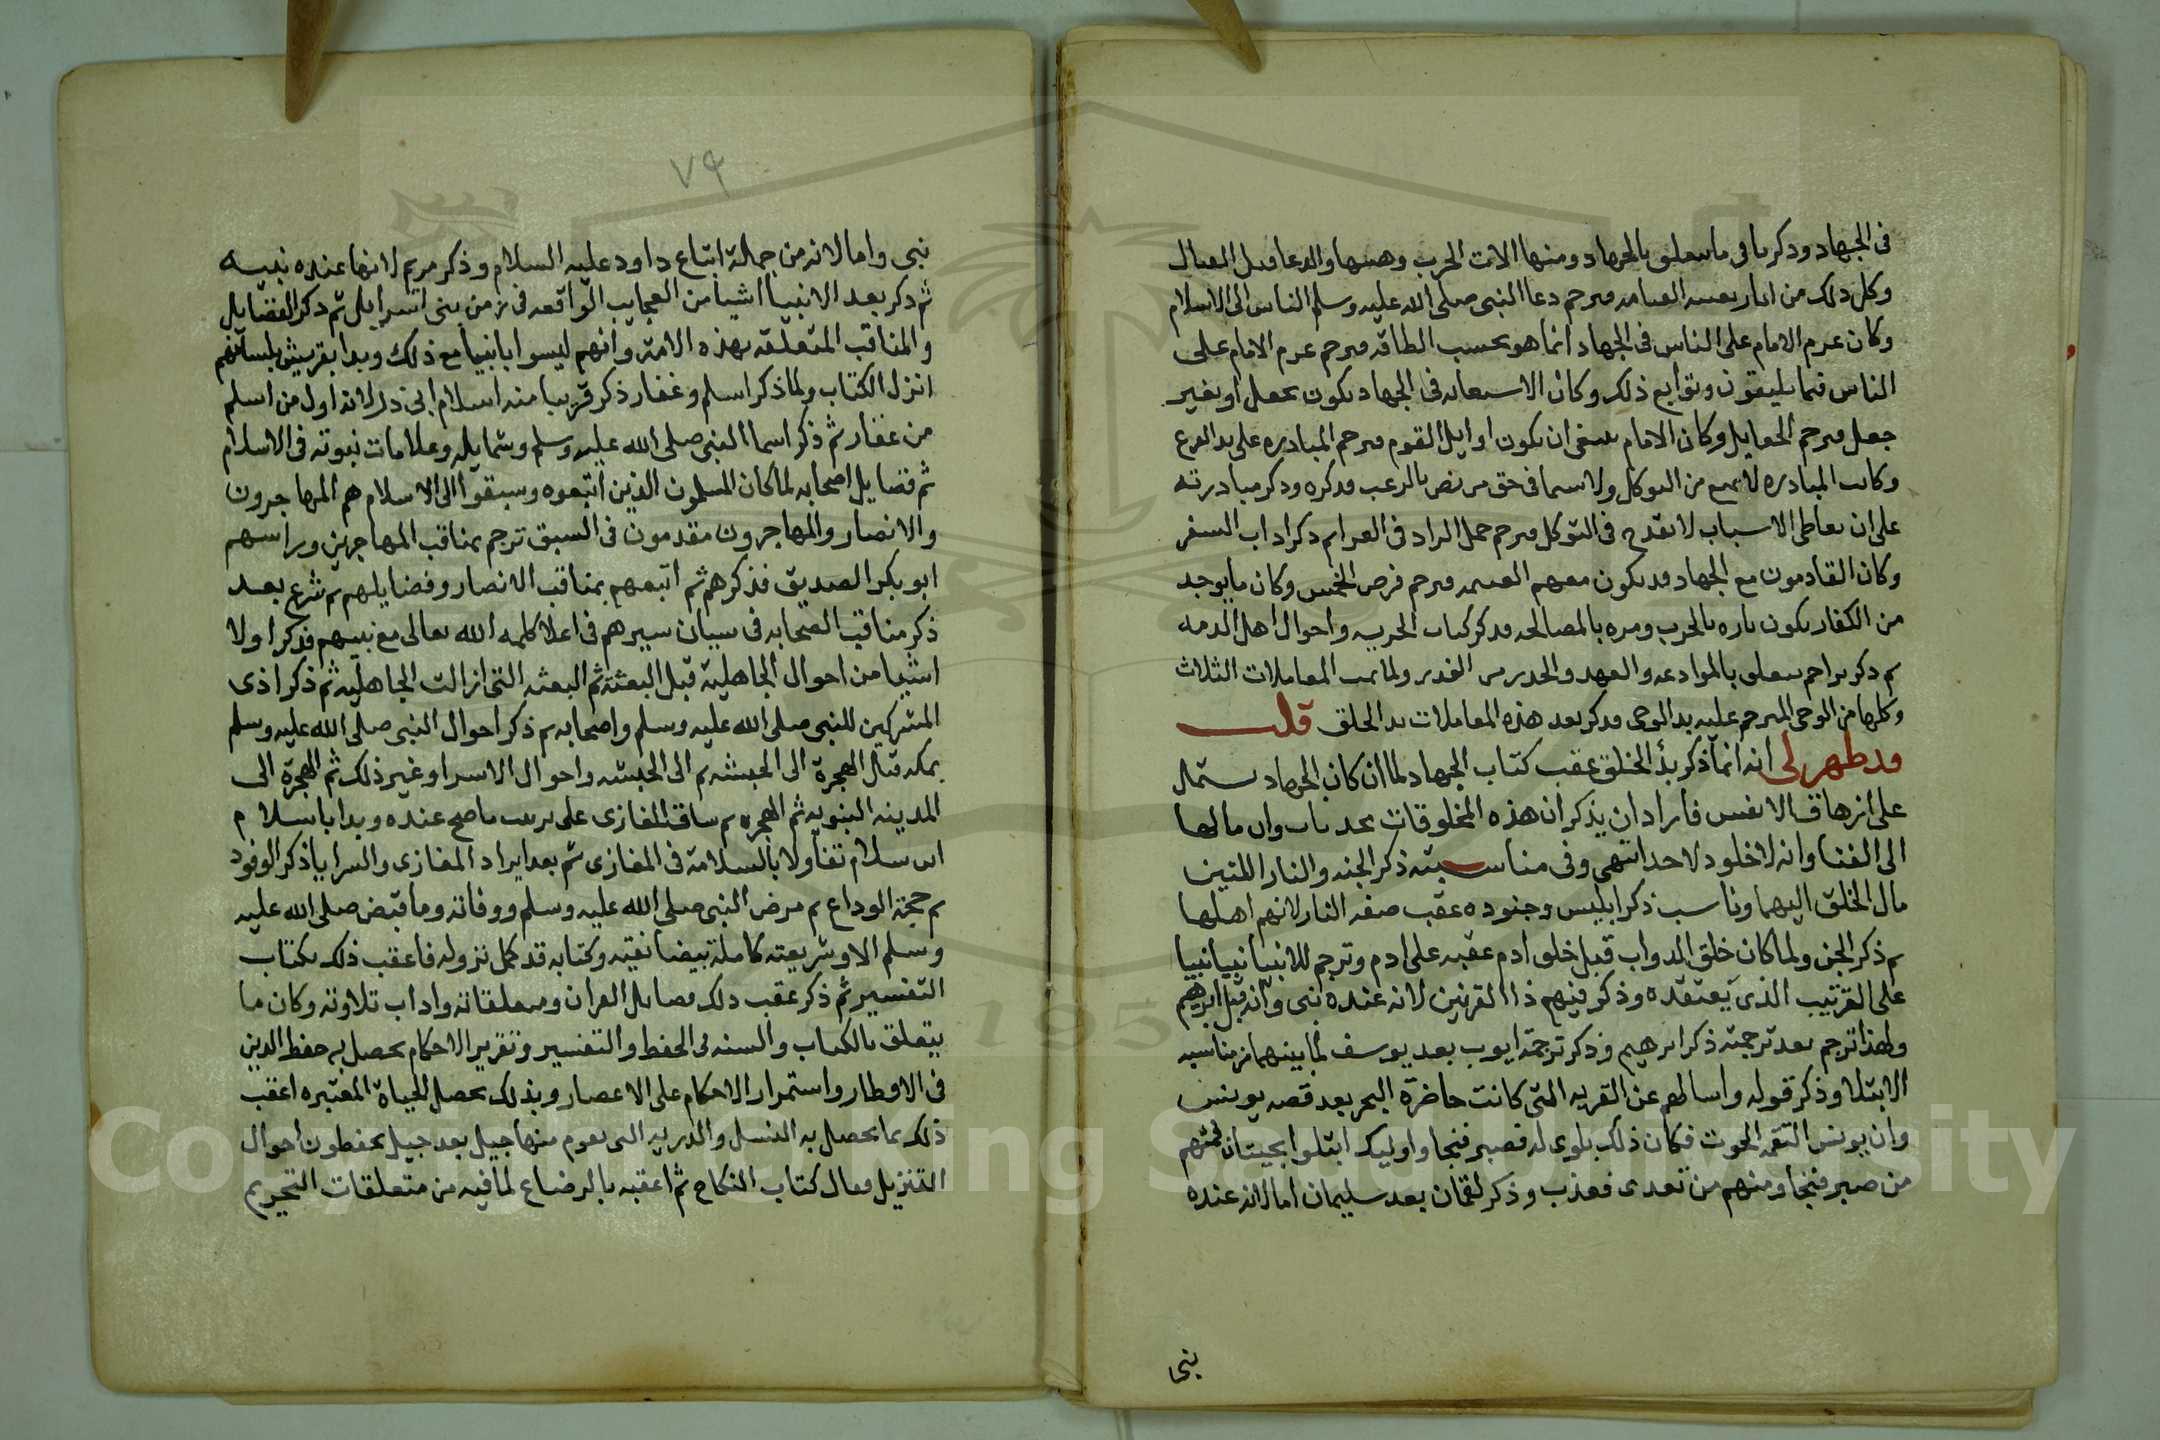 فى الجهاد وذكر باقى ما يتعلق بالجهاد ومنها الات الحرب وهيتها والدعا قبل القتال
وكل ذلك من اثار بعثته العامه فترجم دعا النبى صلى الله عليه وسلم الناس الى الاسلام
وكان عزم الامام على الناس فى الجهاد انما هو بحسب الطاقه فترجم عزم الامام على
الناس فيما يطيقون وتوابع ذلك وكان الاستعانه فى الجهاد يكون بجعل او بغير
جعل فترجم الجعايل وكان الامام ينبغى ان يكون اوايل القوم فترجم المبادره على بدا الفزع
وكانت المبادره لا تمنع من التوكل ولا سيما فى حق من نصر بالرعب فذكره وذكر مبادرته
على ان تعاطى الاسباب لا تقدح فى التوكل فترجم حمل الزاد فى الغزو ثم ذكر اداب السفر
وكان القادمون مع الجهاد قد يكون معهم الغنيمه فترجم فرض الخمس وكان ما يوجد
من الكفار يكون تاره بالحرب ومره بالمصالحه فذكر كتاب الجزيه واحوال اهل الذمه
ثم ذكر تراجم تتعلق بالموادعه والعهد والحذر من الغدر ولما تمت المعاملات الثلاث
وكلها من الوحى المترجم عليه بدا الوحى فذكر بعد هذه المعاملات بدا الخلق قلت
قد ظهر لى انه انما ذكر بدأ الخلق عقب كتاب الجهاد لما ان كان الجهاد يشتمل
على ازهاق الانفس فاراد ان يذكر ان هذه المخلوقات محدثات وان مالها
الى الفنا وانه لا خلود لاحد انتهى وفى مناسبته ذكر الجنه والنار اللتين
مال الخلق اليهما وناسب ذكر ابليس وجنوده عقب صفه النار لانهم اهلها
ثم ذكر الجن ولما كان خلق الدواب قبل خلق ادم عقبه على ادم وترجم للانبيا نبيا نبيا
على الترتيب الذى يعتقده وذكر فيهم ذا القرنين لانه عنده نبى وانه قبل ابرهيم
ولهذا ترجم بعد ترجمته ذكر ابرهيم وذكر ترجمة ايوب بعد يوسف لما بينهما من مناسبه
الابتلا وذكر قوله واسالهم عن القريه التى كانت حاضرة البحر بعد قصه يونس
وان يونس التقمه الحوت فكان ذلك بلوى له فصبر فنجا واوليك ابتلوا بحيتان فمنهم
من صبر فنجا ومنهم من تعدى فعذب وذكر لقمان بعد سليمان اما لانه عنده
نبى
٧٩
نبى واما لانه من جملة اتباع داود عليه السلام وذكر مريم لانها عنده نبيه
ثم ذكر بعد الانبيا اشيا من العجايب الواقعه فى زمن بنى اسرايل ثم ذكر الفضايل
والمناقب المتعلقه بهذه الامة وانهم ليسوا بانبيا مع ذلك وبدا بقريش بلسانهم
انزل الكتاب ولما ذكر اسلم وغفار ذكر قريبا منه اسلام ابى ذر لانه اول من اسلم
من غفار ثم ذكر اسما النبى صلى الله عليه وسلم وشمايله وعلامات نبوته فى الاسلام
ثم فضايل اصحابه لما كان المسلمون الذين اتبعوه وسبقوا الى الاسلام هم المهاجرون
والانصار والمهاجرون مقدمون فى السبق ترجم بمناقب المهاجرين وراسهم
ابو بكر الصديق فذكرهم ثم اتبعهم بمناقب الانصار وفضايلهم ثم شرع بعد
ذكر مناقب الصحابه فى سيان سيرهم فى اعلا كلمه الله تعالى مع نبيهم فذكر اولا
اشيا من احوال الجاهلية قبل البعثة ثم البعثه التى ازالت الجاهليه ثم ذكر اذى
المشركين للنبى صلى الله عليه وسلم واصحابه ثم ذكر احوال النبى صلى الله عليه وسلم
بمكه قبل الهجرة الى الحبشه ثم الى الحبشه واحوال الاسرا وغير ذلك ثم الهجرة الى
المدينه النبويه ثم الهجره ثم ساق المغازى على ترتيب ما صح عنده وبدا باسلام
ابن سلام تفاولا بالسلامة فى المغازى ثم بعد ايراد المغازى والسرايا ذكر الوفود
ثم حجة الوداع ثم مرض النبى صلى الله عليه وسلم ووفاته وما قبض صلى الله عليه
وسلم الا وشريعته كاملة بيضا نقيه وكتابه قد كمل نزوله فاعقب ذلك بكتاب
التفسير ثم ذكر عقب ذلك فضايل القران ومتعلقاته واداب تلاوته وكان ما
يتعلق بالكتاب والسنه فى الحفظ والتفسير وتقرير الاحكام يحصل به حفظ الدين
فى الاقطار واستمرار الاحكام على الاعصار وبذلك يحصل الحياة المعتبره اعقب
ذلك بما يحصل به النسل والذريه التى يقوم منها جيل بعد جيل يحفظون احوال
التنزيل فقال كتاب النكاح ثم اعقبه بالرضاع لما فيه من متعلقات التحريم
Copy
ing S
sity
195